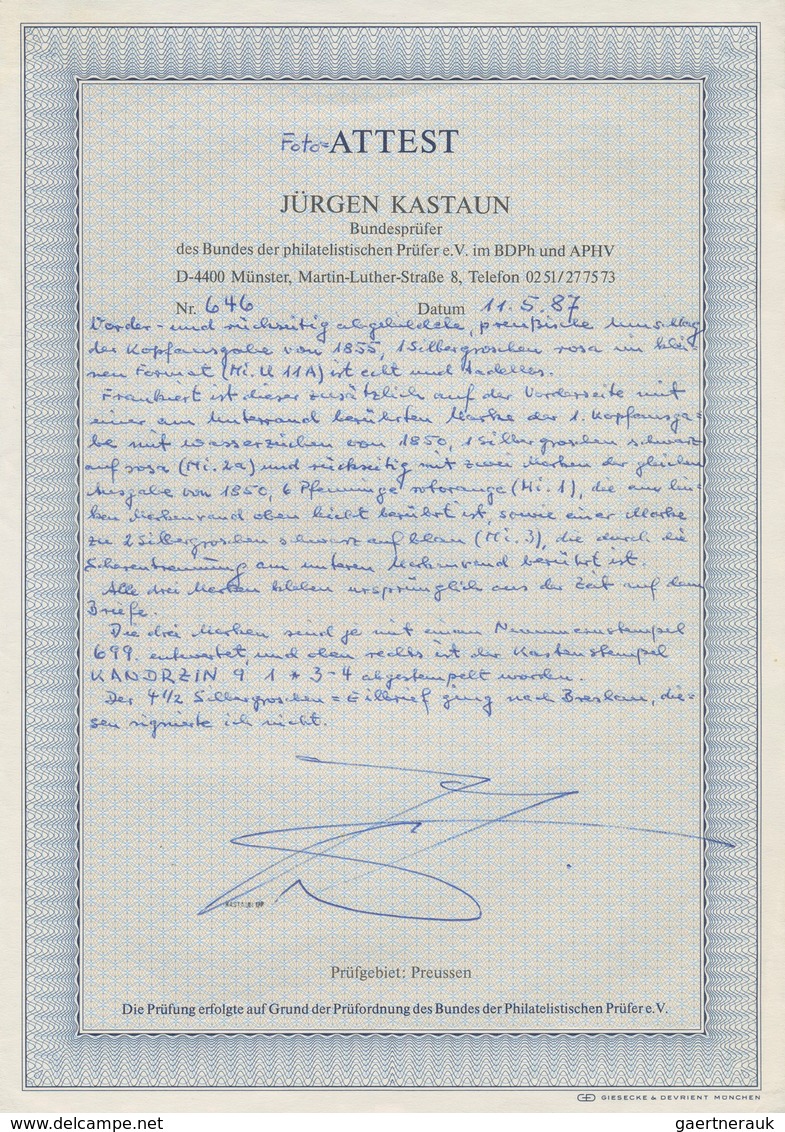 Foto=ATTEST
JÜRGEN KASTAUN
Bundesprüfer
des Bundes der philatelistischen Prüfer e.V. im BDPh und APHV
D-4400 Münster, Martin-Luther-Straße 8, Telefon 0251/277573
Nr. 646 Datum 11.5.87
Vorder- und rückseitig abgebildete, preußische Umschlag
der Kopfausgabe von 1855, 1 Silbergroschen rosa im klei=
nen Format (Mi. U 11A) ist echt und tadellos.
Frankiert ist dieser zusätzlich auf der Vorderseite mit
einer am Unterrand berührten Marke der 1. Kopfausga=
be mit Wasserzeichen von 1850, 1 Silbergroschen schwarz
auf rosa (Mi. 2a) und rückseitig mit zwei Marken der gleichen
Ausgabe von 1850, 6 Pfenninge rotorange (Mi. 1), die am lin=
ken Markenrand oben leicht berührt ist, sowie einer Marke
zu 2 Silbergroschen schwarz auf blau (Mi. 3), die durch die
Scherentrennung am unteren Markenrand berührt ist.
Alle drei Marken kleben ursprünglich aus der Zeit auf dem
Briefe.
Die drei Marken sind je mit einem Nummernstempel
699. entwertet, und oben rechts ist der Kastenstempel
KANDRZIN 9 1 * 3-4 abgestempelt worden.
Der 4 1/2 Silbergroschen = Eilbrief ging nach Breslau, die=
sen signierte ich nicht.
KASTAUN BPP
Prüfgebiet: Preussen
Die Prüfung erfolgte auf Grund der Prüfordnung des Bundes der Philatelistischen Prüfer e.V.
GIESECKE & DEVRIENT MÜNCHEN
gaertnerauk